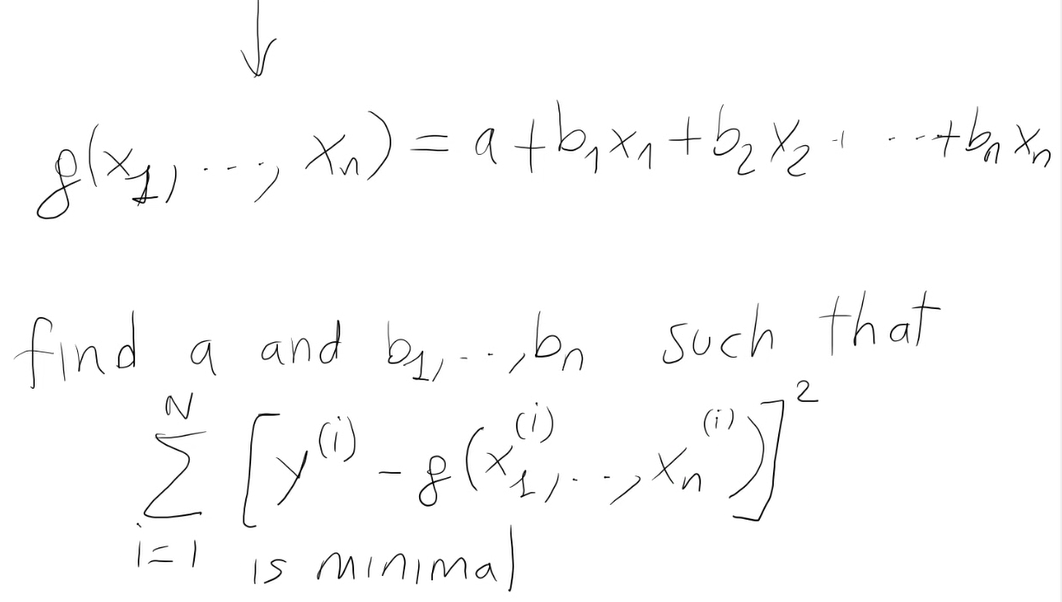 g(x₁, ..., xₙ) = a + b₁x₁ + b₂x₂ + ... + bₙxₙ
find a and b₁, ..., bₙ such that
N
∑ [y⁽ⁱ⁾ - g(x₁⁽ⁱ⁾, ..., xₙ⁽ⁱ⁾)]²
i=1 is minimal